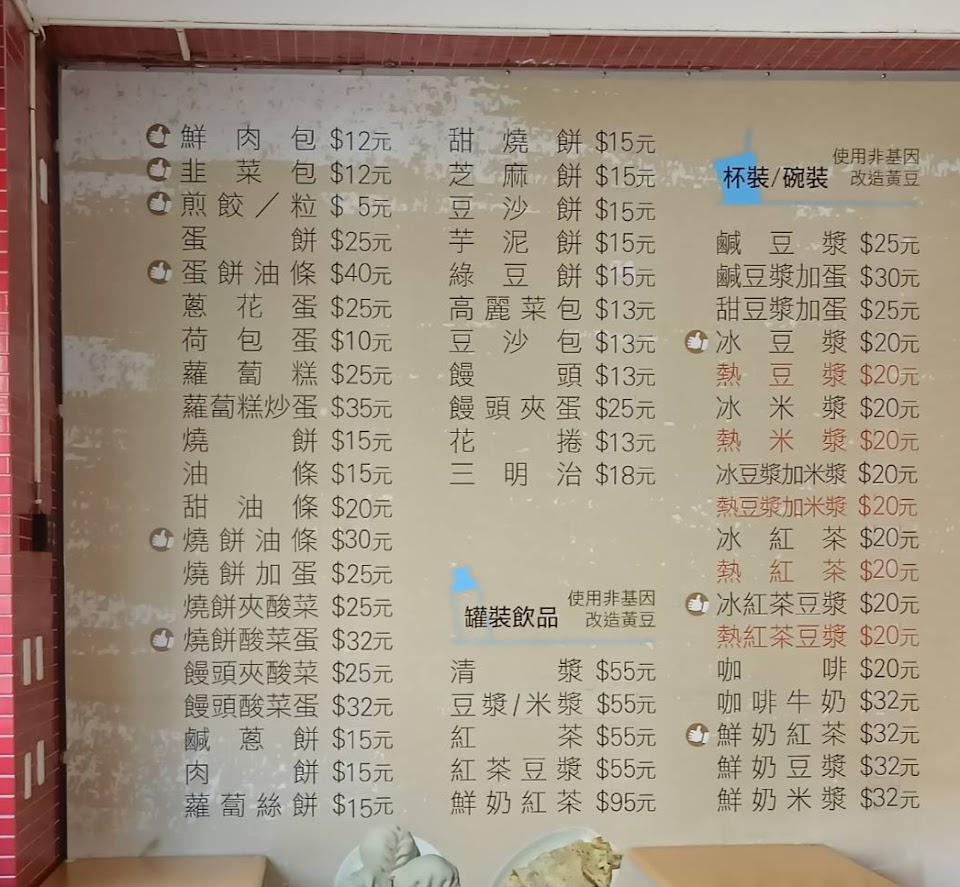 鮮肉包 $12元
韭菜包 $12元
煎餃/粒 $ 5元
蛋餅 $25元
蛋餅油條 $40元
蔥花蛋 $25元
荷包蛋 $10元
蘿蔔糕 $25元
蘿蔔糕炒蛋 $35元
燒餅 $15元
油條 $15元
甜油條 $20元
燒餅油條 $30元
燒餅加蛋 $25元
燒餅夾酸菜 $25元
燒餅酸菜蛋 $32元
饅頭夾酸菜 $25元
饅頭酸菜蛋 $32元
鹹蔥餅 $15元
肉餅 $15元
蘿蔔絲餅 $15元
甜燒餅 $15元
芝麻餅 $15元
豆沙餅 $15元
芋泥餅 $15元
綠豆餅 $15元
高麗菜包 $13元
豆沙包 $13元
饅頭 $13元
饅頭夾蛋 $25元
花捲 $13元
三明治 $18元
罐裝飲品
使用非基因
改造黃豆
清漿 $55元
豆漿/米漿 $55元
紅茶 $55元
紅茶豆漿 $55元
鮮奶紅茶 $95元
杯裝/碗裝
使用非基因
改造黃豆
鹹豆漿 $25元
鹹豆漿加蛋 $30元
甜豆漿加蛋 $25元
冰豆漿 $20元
熱豆漿 $20元
冰米漿 $20元
熱米漿 $20元
冰豆漿加米漿 $20元
熱豆漿加米漿 $20元
冰紅茶 $20元
熱紅茶 $20元
冰紅茶豆漿 $20元
熱紅茶豆漿 $20元
咖啡 $20元
咖啡牛奶 $32元
鮮奶紅茶 $32元
鮮奶豆漿 $32元
鮮奶米漿 $32元